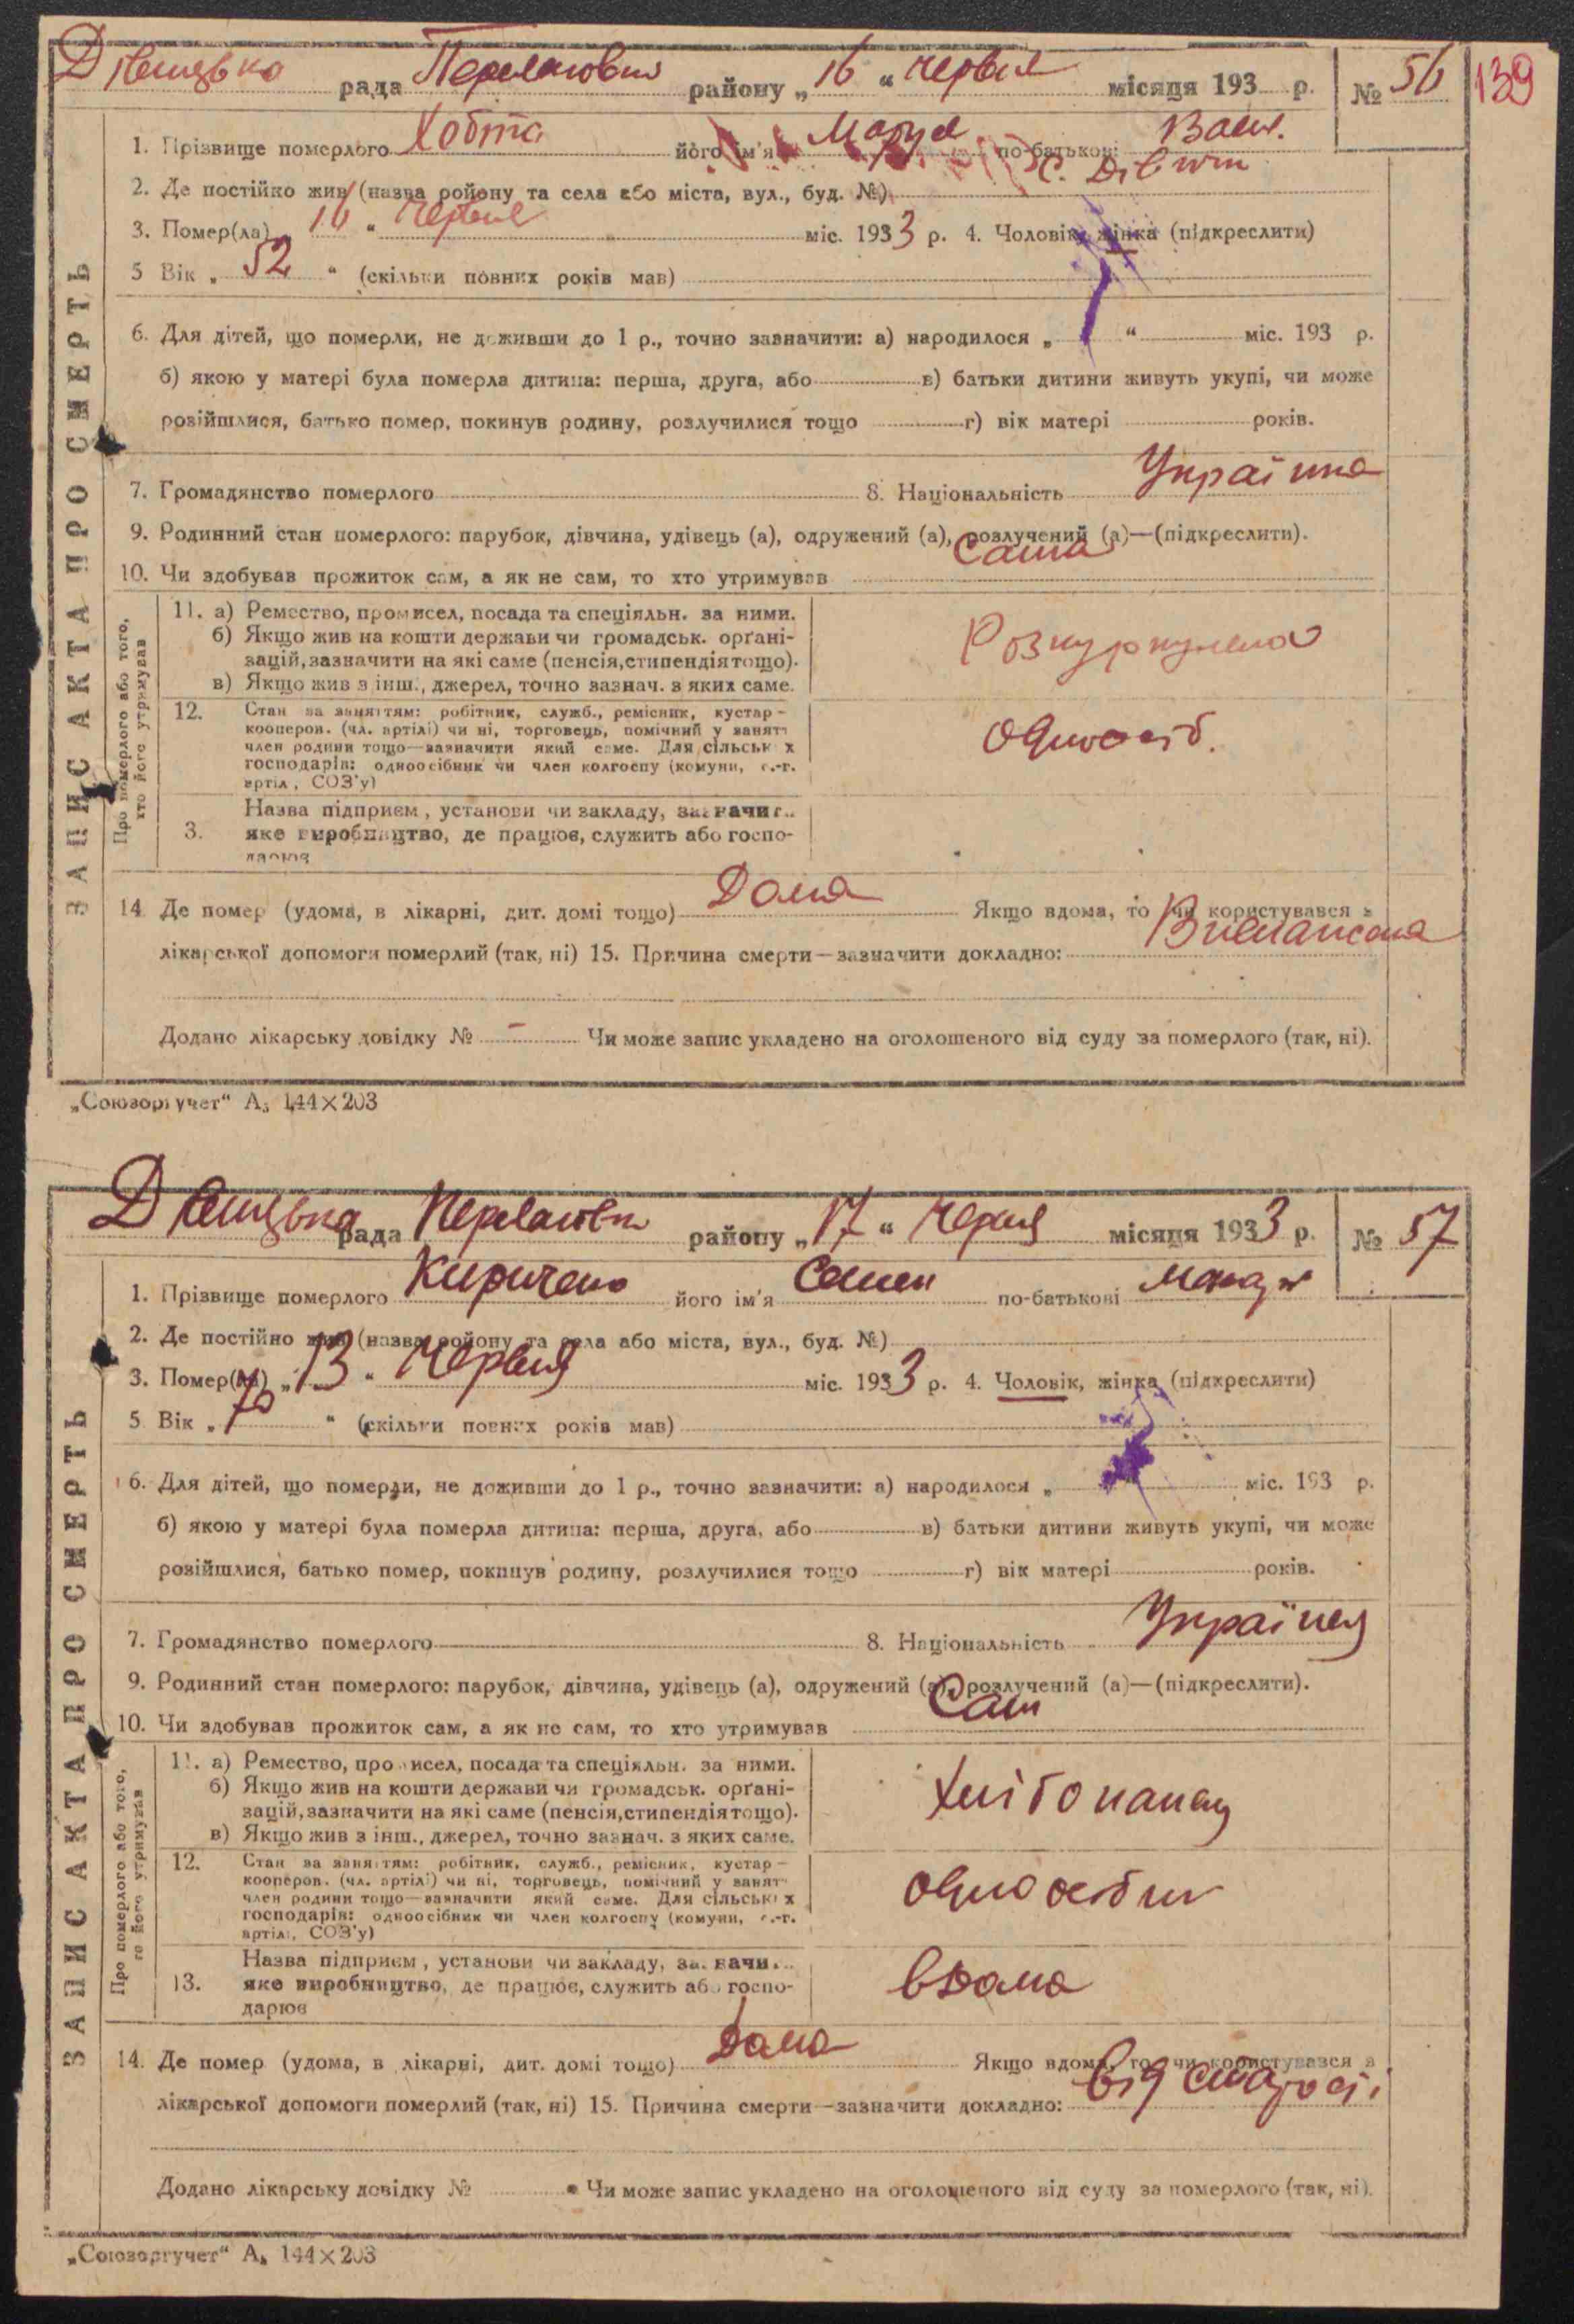 рада району „ 16 “ червня місяця 193 р. № 56 139
1. Прізвище померлого Хобта його ім'я Мария по-батькові Васил.
2. Де постійно жив (назва ройону та села або міста, вул., буд. №) с.
3. Помер(ла) „ 16 “ червня міс. 1933 р. 4. Чоловік, жінка (підкреслити)
5 Вік „ 52 “ (скільки повних років мав)
6. Для дітей, що померли, не доживши до 1 р., точно зазначити: а) народилося „ “ міс. 193 р.
б) якою у матері була померла дитина: перша, друга, або в) батьки дитини живуть укупі, чи може
розійшлися, батько помер, покинув родину, розлучилися тощо г) вік матері років.
7. Громадянство померлого 8. Національність Україінка
9. Родинний стан померлого: парубок, дівчина, удівець (а), одружений (а), розлучений (а)—(підкреслити).
10. Чи здобував прожиток сам, а як не сам, то хто утримував Сама
ЗАПИС АКТА ПРО СМЕРТЬ
Про померлого або того,
хто його утримував
11. а) Ремество, промисел, посада та спеціяльн. за ними.
б) Якщо жив на кошти держави чи громадськ. орґані-
зацій, зазначити на які саме (пенсія, стипендія тощо).
в) Якщо жив з інш., джерел, точно зазнач. з яких саме.
Розкуркулена
12. Стан за заняттям: робітник, служб., ремісник, кустар-
кооперов. (чл. артілі) чи ні, торговець, помічний у занятт
член родини тощо—зазначити який саме. Для сільськ х
господарів: одноосібник чи член колгоспу (комуни, с.-г.
артіл, СОЗ'у)
Одноосіб.
3. Назва підприєм, установи чи закладу, зазначит..
яке виробництво, де працює, служить або госпо-
дарює
14 Де помер (удома, в лікарні, дит. домі тощо) Дома Якщо вдома, то чи користувався з
лікарської допомоги померлий (так, ні) 15. Причина смерти—зазначити докладно:
Додано лікарську довідку № – Чи може запис укладено на оголошеного від суду за померлого (так, ні).
„Союзоргучет“ А5 144×203
рада району „ 17 “ Червня місяця 1933 р. № 57
1. Прізвище померлого Кириченко його ім'я Семен по-батькові
2. Де постійно жив (назва ройону та села або міста, вул., буд. №)
3. Помер(ла) „ 13 “ Червня міс. 1933 р. 4. Чоловік, жінка (підкреслити)
5 Вік „ 70 “ (скільки повних років мав)
6. Для дітей, що померли, не доживши до 1 р., точно зазначити: а) народилося „ міс. 193 р.
б) якою у матері була померла дитина: перша, друга, або в) батьки дитини живуть укупі, чи може
розійшлися, батько помер, покинув родину, розлучилися тощо г) вік матері років.
7. Громадянство померлого 8. Національність Українец
9. Родинний стан померлого: парубок, дівчина, удівець (а), одружений (а), розлучений (а)—(підкреслити).
10. Чи здобував прожиток сам, а як не сам, то хто утримував Сам
ЗАПИС АКТА ПРО СМЕРТЬ
Про померлого або того,
го його утримував
11. а) Ремество, про исел, посада та спеціяльн. за ними.
б) Якщо жив на кошти держави чи громадськ. орґані-
зацій, зазначити на які саме (пенсія, стипендія тощо).
в) Якщо жив з інш., джерел, точно зазнач. з яких саме.
12. Стан за заняттям: робітник, служб., ремісник, кустар-
кооперов. (чл. артілі) чи ні, торговець, помічний у занятт
член родини тощо—зазначити який саме. Для сільськ х
господарів: одноосібник чи член колгоспу (комуни, с.-г.
артіл, СОЗ'у)
одноосібник
13. Назва підприєм, установи чи закладу, за начи..
яке виробництво, де працює, служить або госпо-
дарює
вдома
14. Де помер (удома, в лікарні, дит. домі тощо) Дома Якщо вдома, то чи користувався з
лікарської допомоги померлий (так, ні) 15. Причина смерти—зазначити докладно: від старості
Додано лікарську довідку № Чи може запис укладено на оголошеного від суду за померлого (так, ні).
„Союзоргучет“ А5 144×203